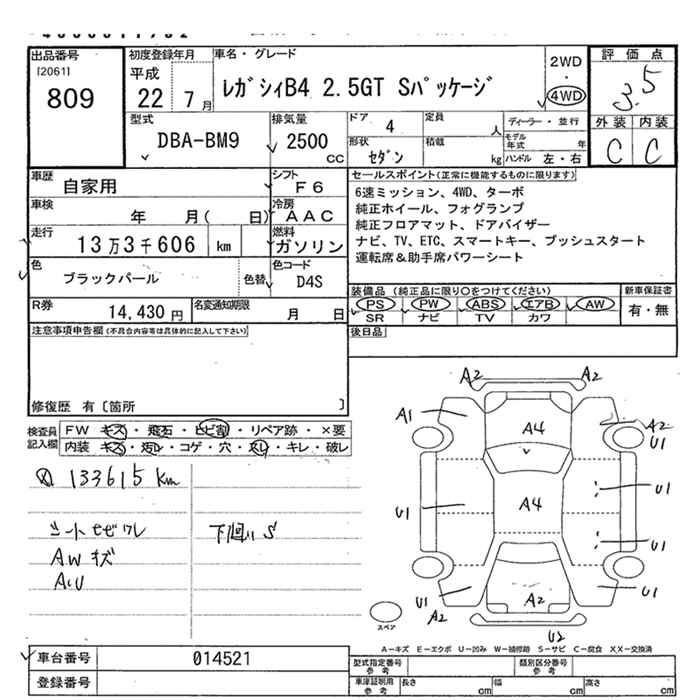 出品番号
[2061]
809
初度登録年月
平成
22 7月
車名・グレード
レガシィB4 2.5GT Sパッケージ
2WD
・
4WD
評価点
3.5
外装 内装
C C
型式
DBA-BM9
排気量
2500
CC
ドア
4
定員
人
形状
セダン
積載
kg
ディーラー・並行
モデル年式 年
ハンドル 左・右
車歴
自家用
シフト
F6
車検
年 月( 日)
冷房
AAC
走行
13万3千606 km
燃料
ガソリン
色
ブラックパール
色替
色コード
D4S
R券
14,430円
名変通知期限
月 日
セールスポイント(正常に機能するものに限ります)
6速ミッション、4WD、ターボ
純正ホイール、フォグランプ
純正フロアマット、ドアバイザー
ナビ、TV、ETC、スマートキー、プッシュスタート
運転席&助手席パワーシート
装備品(純正品に限り○をつけてください)
新車保証書
PS PW ABS エアB AW
有・無
SR ナビ TV カワ
後日品
注意事項申告欄(不具合内容等は具体的に記入して下さい)
修復歴 有[箇所 ]
検査員
記入欄
FW キズ・飛石・ヒビ割・リペア跡・×要
内装 キズ・汚レ・コゲ・穴・スレ・キレ・破レ
133615 km
シートセビワレ
AWキズ
下廻りS
A2
A2
A1
A4
A2
U1
U1
A4
U1
U1
U1
A2
A2
U1
U2
スペア
A-キズ E-エクボ U-凹み W-補修跡 S-サビ C-腐食 XX-交換済
車台番号
014521
登録番号
型式指定番号
参考
類別区分番号
参考
車庫証明用
参考
長さ cm
幅 cm
高さ cm